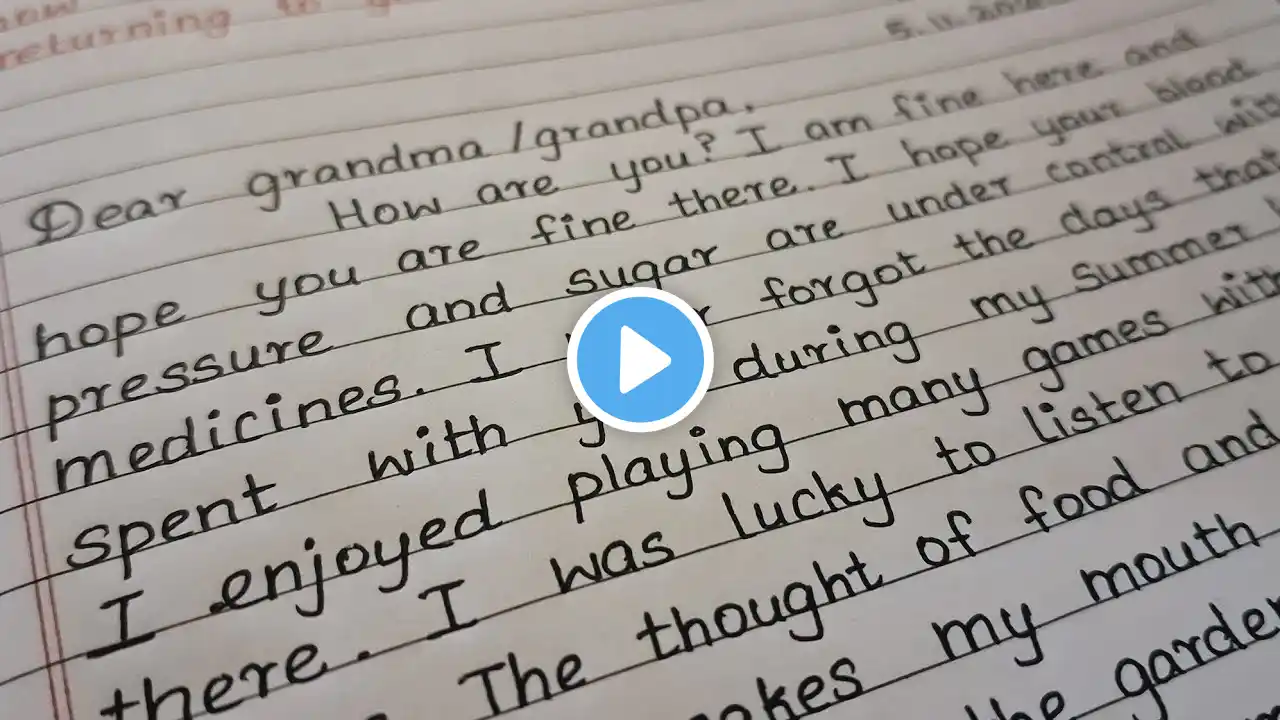 returning to
5.11.20
Dear grandma/grandpa,
How are you? I am fine here and
hope you are fine there. I hope your blood
pressure and sugar are under control with
medicines. I forgot the days that
spent with during my summer
I enjoyed playing many games with
there. I was lucky to listen to
The thought of food and
my mouth
the garden